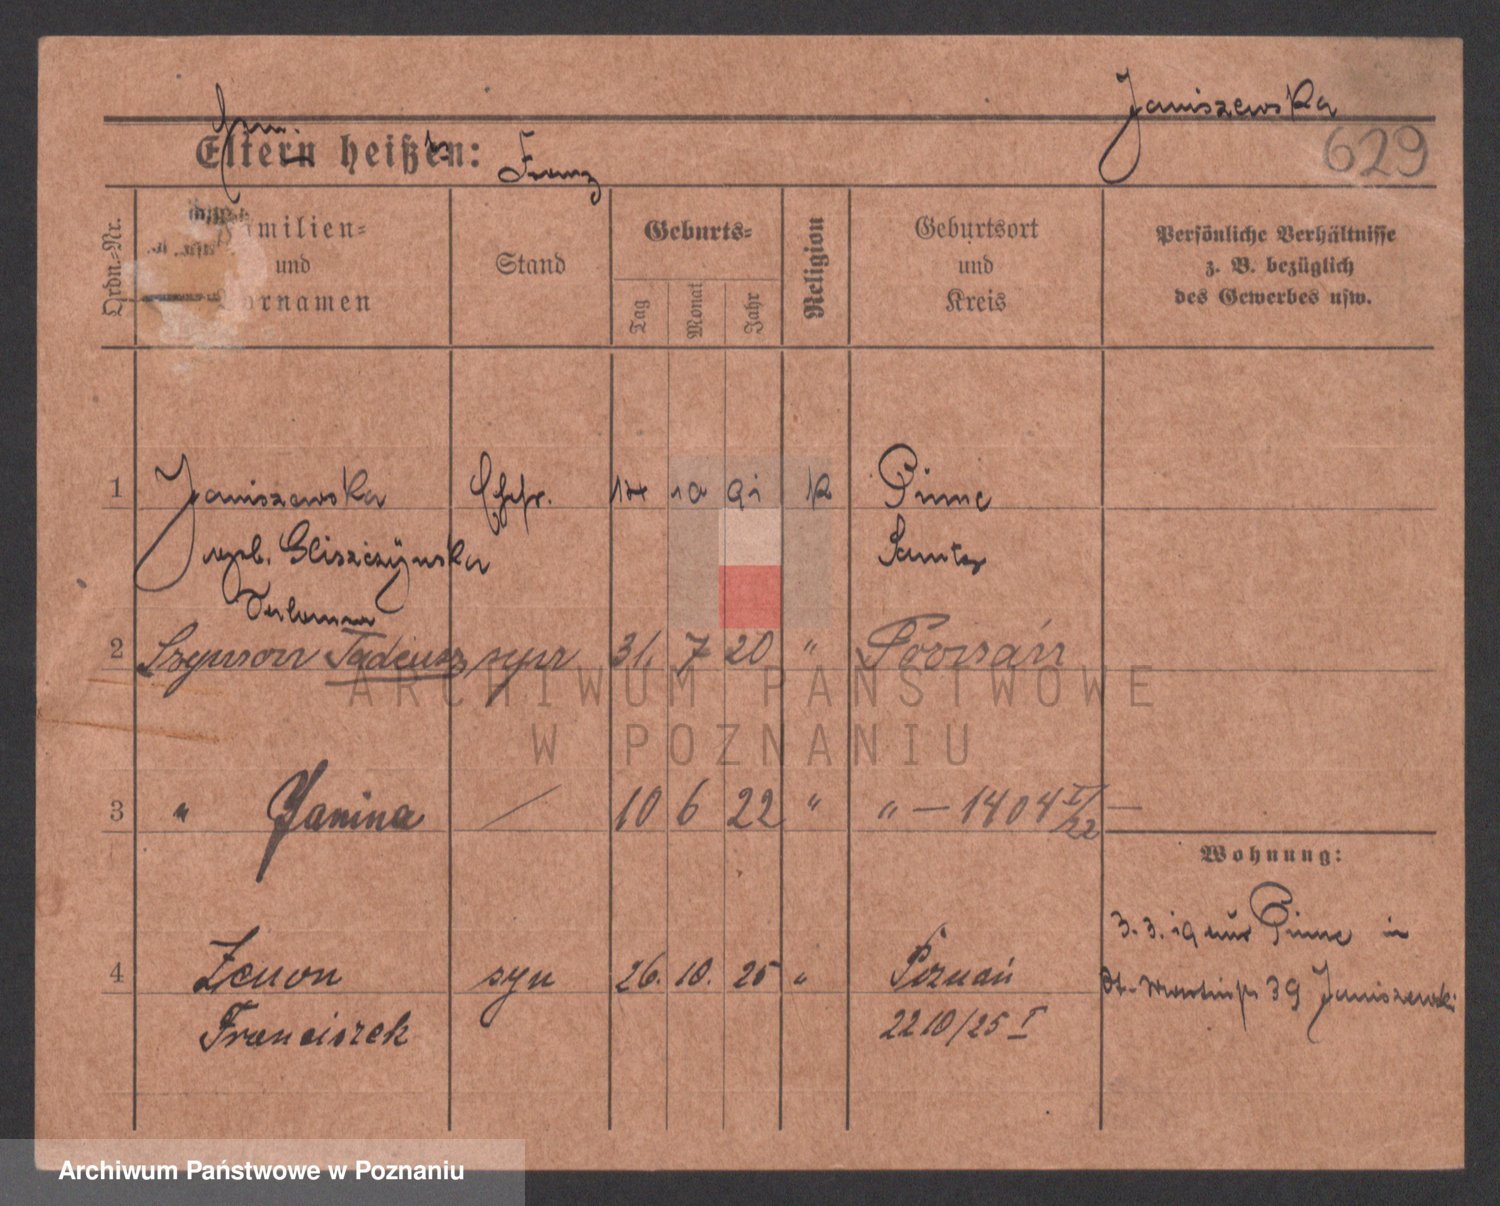 Janiszewska
629
Eltern heißen: Franz
Ordn.-Nr.
Familien- und Vornamen
Stand
Geburts-
Tag
Monat
Jahr
Religion
Geburtsort und Kreis
Persönliche Verhältnisse
z. B. bezüglich
des Gewerbes usw.
1 Janiszewska Ehefr. 10 91 k Pinne
geb. Gliszczyńska Samter
2 Szymon Tadeusz syn 31. 7 20 " Poznań
3 " Janina / 10 6 22 " " — 1404 I/22 —
Wohnung:
3. 3. 19 aus Pinne in
4 Zenon syn 26. 10. 25 " Poznań
St. Martinstr 39 Janiszewski
Franciszek 2210/25 I
ARCHIWUM PAŃSTWOWE
W POZNANIU
Archiwum Państwowe w Poznaniu